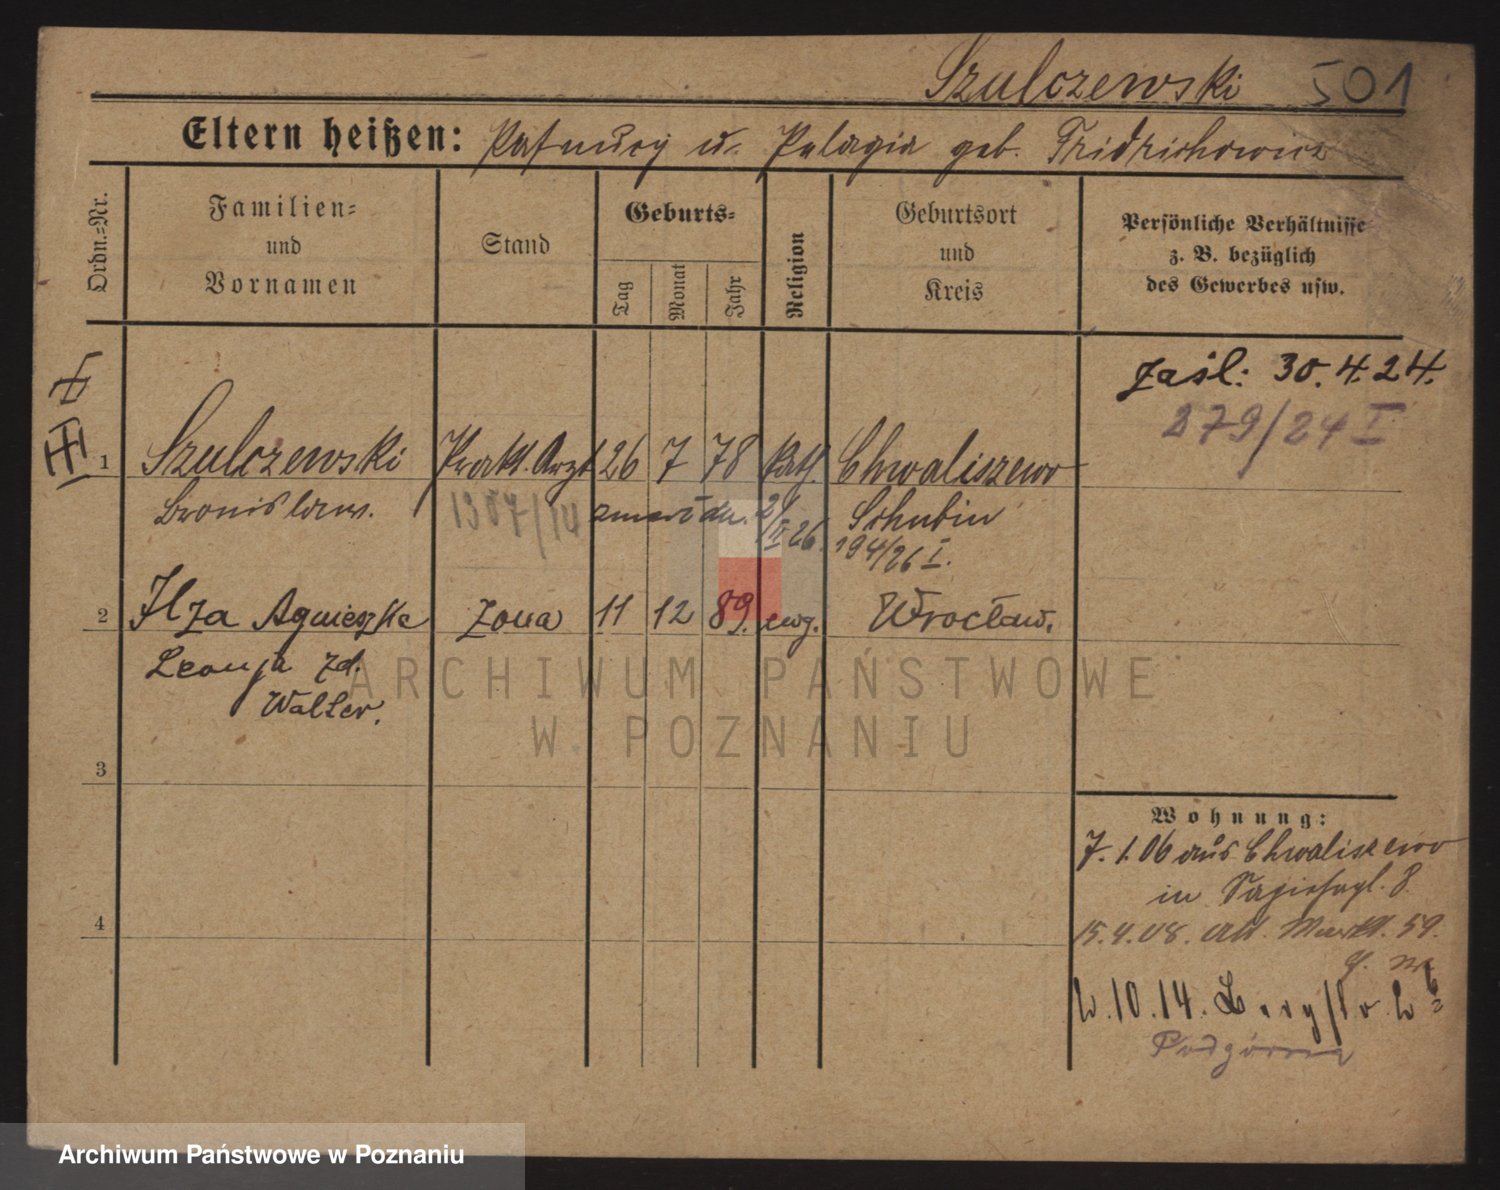 Szulczewski 501
Eltern heißen: Pafnucy u. Pelagia geb. Fridrichowicz
Ordn.=Nr.
Familien=
und
Vornamen
Stand
Geburts=
Tag
Monat
Jahr
Religion
Geburtsort
und
Kreis
Persönliche Verhältnisse
z. B. bezüglich
des Gewerbes usw.
zaśl: 30.4.24.
279/24 I
1 Szulczewski Prakt. Arzt 26 7 78 kath. Chwaliszewo
Bronislaw. 1307/14 Schubin
194/26 I.
2 Ilza Agnieszka żona 11 12 89. ewg. Wrocław.
Leonja zd.
Walter.
3
4
Wohnung:
7.1.06 aus Chwaliszewo
in 8
15.4.08. Alt. Markt. 59.
2.10.14. Bergstr. 2
Podgórna
ARCHIWUM PAŃSTWOWE
W POZNANIU
Archiwum Państwowe w Poznaniu